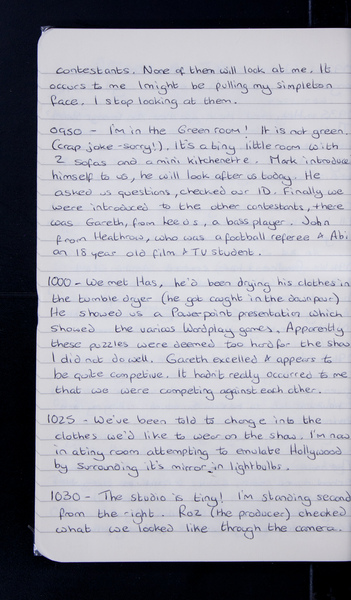 contestants. None of them will look at me. It
occurs to me I might be pulling my simpleton
face. I stop looking at them.
0950 - I'm in the Green room! It is not green.
(crap joke - sorry!). It's a tiny little room with
2 sofas and a mini kitchenette. Mark introduce
himself to us, he will look after us today. He
asked us questions, checked our ID. Finally we
were introduced to the other contestants, there
was Gareth, from Leeds, a bass player. John
from Heathrow, who was a football referee & Abi
an 18 year old film & TV student.
1000 - We met Has, he'd been drying his clothes in
the tumble dryer (he got caught in the downpour)
He showed us a Powerpoint presentation which
showed the various Wordplay games. Apparently
these puzzles were deemed too hard for the show
I did not do well. Gareth excelled & appears to
be quite competive. It hadn't really occurred to me
that we were competing against each other.
1025 - We've been told to change into the
clothes we'd like to wear on the show. I'm now
in a tiny room attempting to emulate Hollywood
by surrounding it's mirror in lightbulbs.
1030 - The studio is tiny! I'm standing second
from the right. Roz (the producer) checked
what we looked like through the camera.